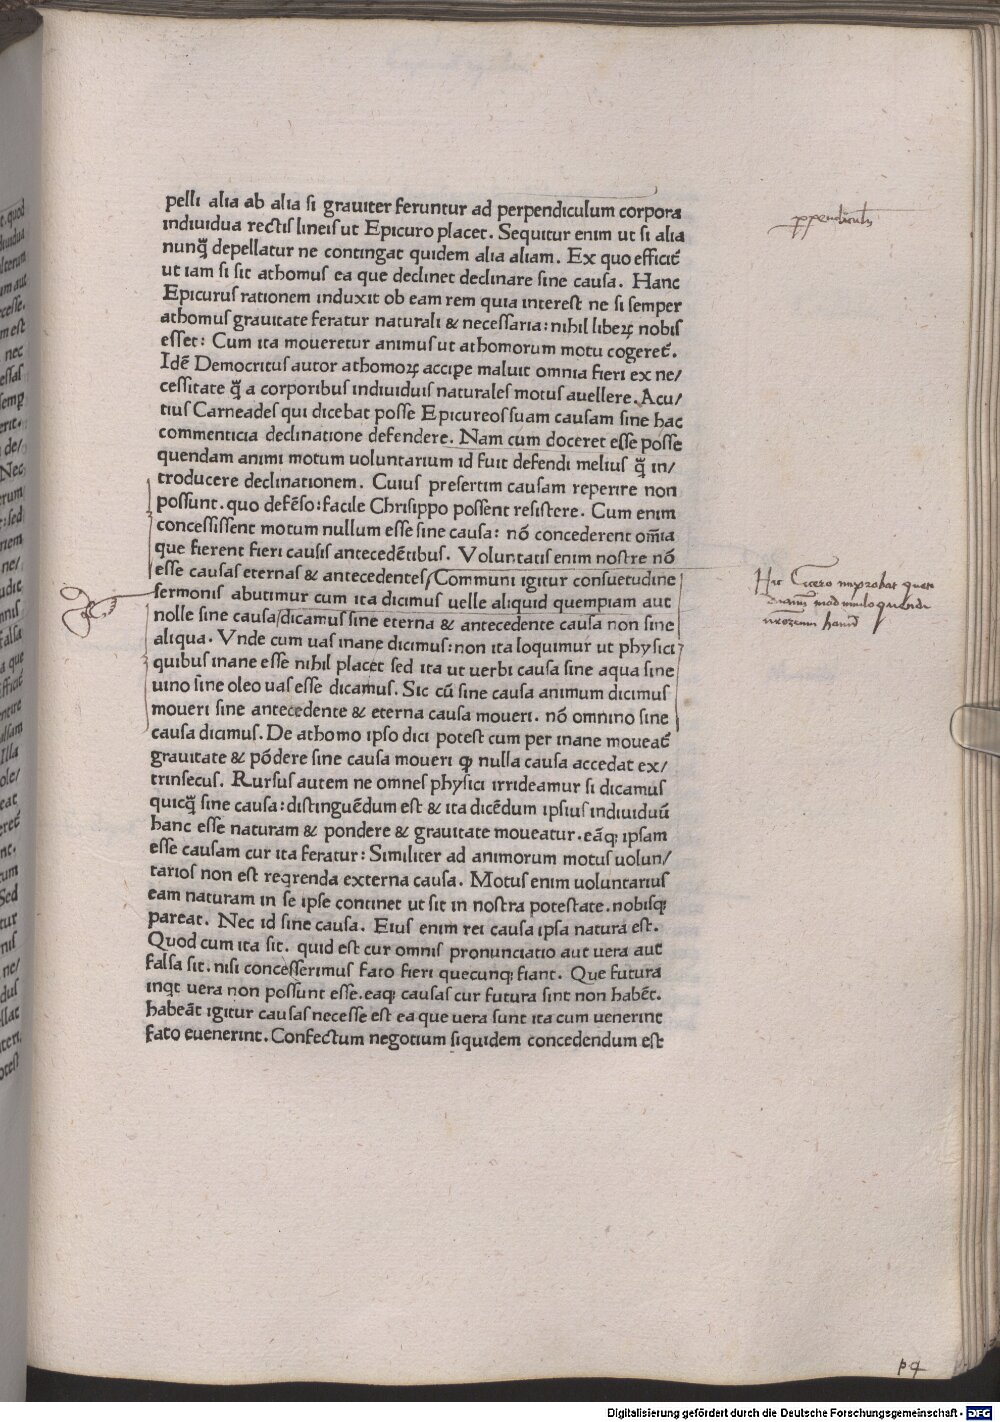 pelli alia ab alia si grauiter feruntur ad perpendiculum corpora
indiuidua rectis lineis ut Epicuro placet. Sequitur enim ut si alia
nunq̃ depellatur ne contingat quidem alia aliam. Ex quo efficit᷑
ut iam si sit athomus ea que declinet declinare sine causa. Hanc
Epicurus rationem induxit ob eam rem quia interest ne si semper
athomus grauitate feratur naturali & necessaria: nihil liberꝝ nobis
esset: Cum ita moueretur animus ut athomorum motu cogeret᷑.
Idē Democritus autor athomoꝝ accipe maluit omnia fieri ex ne/
cessitate q̃ a corporibus indiuiduis naturales motus auellere. Acu/
tius Carneades qui dicebat posse Epicureos suam causam sine hac
commenticia declinatione defendere. Nam cum doceret esse posse
quendam animi motum uoluntarium id fuit defendi melius q̃ in/
troducere declinationem. Cuius presertim causam reperire non
possunt. quo defēso: facile Chrisippo possent resistere. Cum enim
concessissent motum nullum esse sine causa: nō concederent om̄ia
que fierent fieri causis antecedētibus. Voluntatis enim nostre nō
esse causas eternas & antecedentes/Communi igitur consuetudine
sermonis abutimur cum ita dicimus uelle aliquid quempiam aut
nolle sine causa/dicamus sine eterna & antecedente causa non sine
aliqua. Vnde cum uas inane dicimus: non ita loquimur ut physici
quibus inane esse nihil placet sed ita ut uerbi causa sine aqua sine
uino sine oleo uas esse dicamus. Sic cū sine causa animum dicimus
moueri sine antecedente & eterna causa moueri. nō omnino sine
causa dicimus. De athomo ipso dici potest cum per inane moueat᷑
grauitate & pōdere sine causa moueri ꝙ nulla causa accedat ex/
trinsecus. Rursus autem ne omnes physici irrideamur si dicamus
quicq̃ sine causa: distinguēdum est & ita dicēdum ipsius indiuiduū
hanc esse naturam & pondere & grauitate moueatur. eāqꝫ ipsam
esse causam cur ita feratur: Similiter ad animorum motus uolun/
tarios non est reqrenda externa causa. Motus enim uoluntarius
eam naturam in se ipse continet ut sit in nostra potestate. nobisqꝫ
pareat. Nec id sine causa. Eius enim rei causa ipsa natura est.
Quod cum ita sit. quid est cur omnis pronunciatio aut uera aut
falsa sit. nisi concesserimus fato fieri quecunqꝫ fiant. Que futura
inqt uera non possunt esse. eaqꝫ causas cur futura sint non habēt.
habeāt igitur causas necesse est ea que uera sunt ita cum uenerint
fato euenerint. Confectum negotium siquidem concedendum est
ꝑpendiculum
Hic Cicero improbat
p4
Digitalisierung gefördert durch die Deutsche Forschungsgemeinschaft - DFG